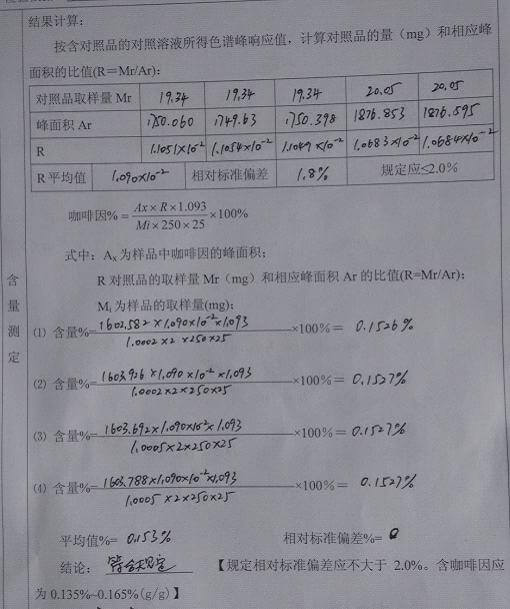 结果计算：
按含对照品的对照溶液所得色谱峰响应值，计算对照品的量（mg）和相应峰
面积的比值(R＝Mr/Ar)：
对照品取样量 Mr 19.34 19.34 19.34 20.05 20.05
峰面积 Ar 1750.060 1749.63 1750.398 1876.853 1876.595
R 1.1051×10⁻² 1.1054×10⁻² 1.1049×10⁻² 1.0683×10⁻² 1.0684×10⁻²
R 平均值 1.090×10⁻² 相对标准偏差 1.8% 规定应≤2.0%
咖啡因% = Ax × R × 1.093 / Mi × 250 × 25 × 100%
式中：Ax 为样品中咖啡因的峰面积；
R 对照品的取样量 Mr（mg）和相应峰面积 Ar 的比值(R=Mr/Ar)；
Mi 为样品的取样量(mg)；
含量测定
⑴ 含量%= 1602.582×1.090×10⁻²×1.093 / 1.0002×2×250×25 ×100%＝ 0.1526%
⑵ 含量%= 1603.926×1.090×10⁻²×1.093 / 1.0002×2×250×25 ×100%＝ 0.1527%
⑶ 含量%= 1603.692×1.090×10⁻²×1.093 / 1.0005×2×250×25 ×100%＝ 0.1527%
⑷ 含量%= 1603.788×1.090×10⁻²×1.093 / 1.0005×2×250×25 ×100%＝ 0.1527%
平均值%= 0.153% 相对标准偏差%= 0
结论： 符合规定 【规定相对标准偏差应不大于 2.0%。含咖啡因应
为 0.135%~0.165%(g/g)】